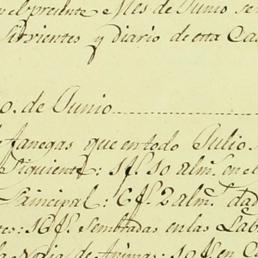 el presente Mes de Junio se
Sirvientes y diario de esta Ca
o. de Junio
fanegas que en todo Julio
Siguiente: 1 f.s 10 alm.s en el
Principal: 6 f.s 2 alm.s dad
es: 16 f.s Sembradas en las Lab
la Noria de Animas: 10 f.s en C